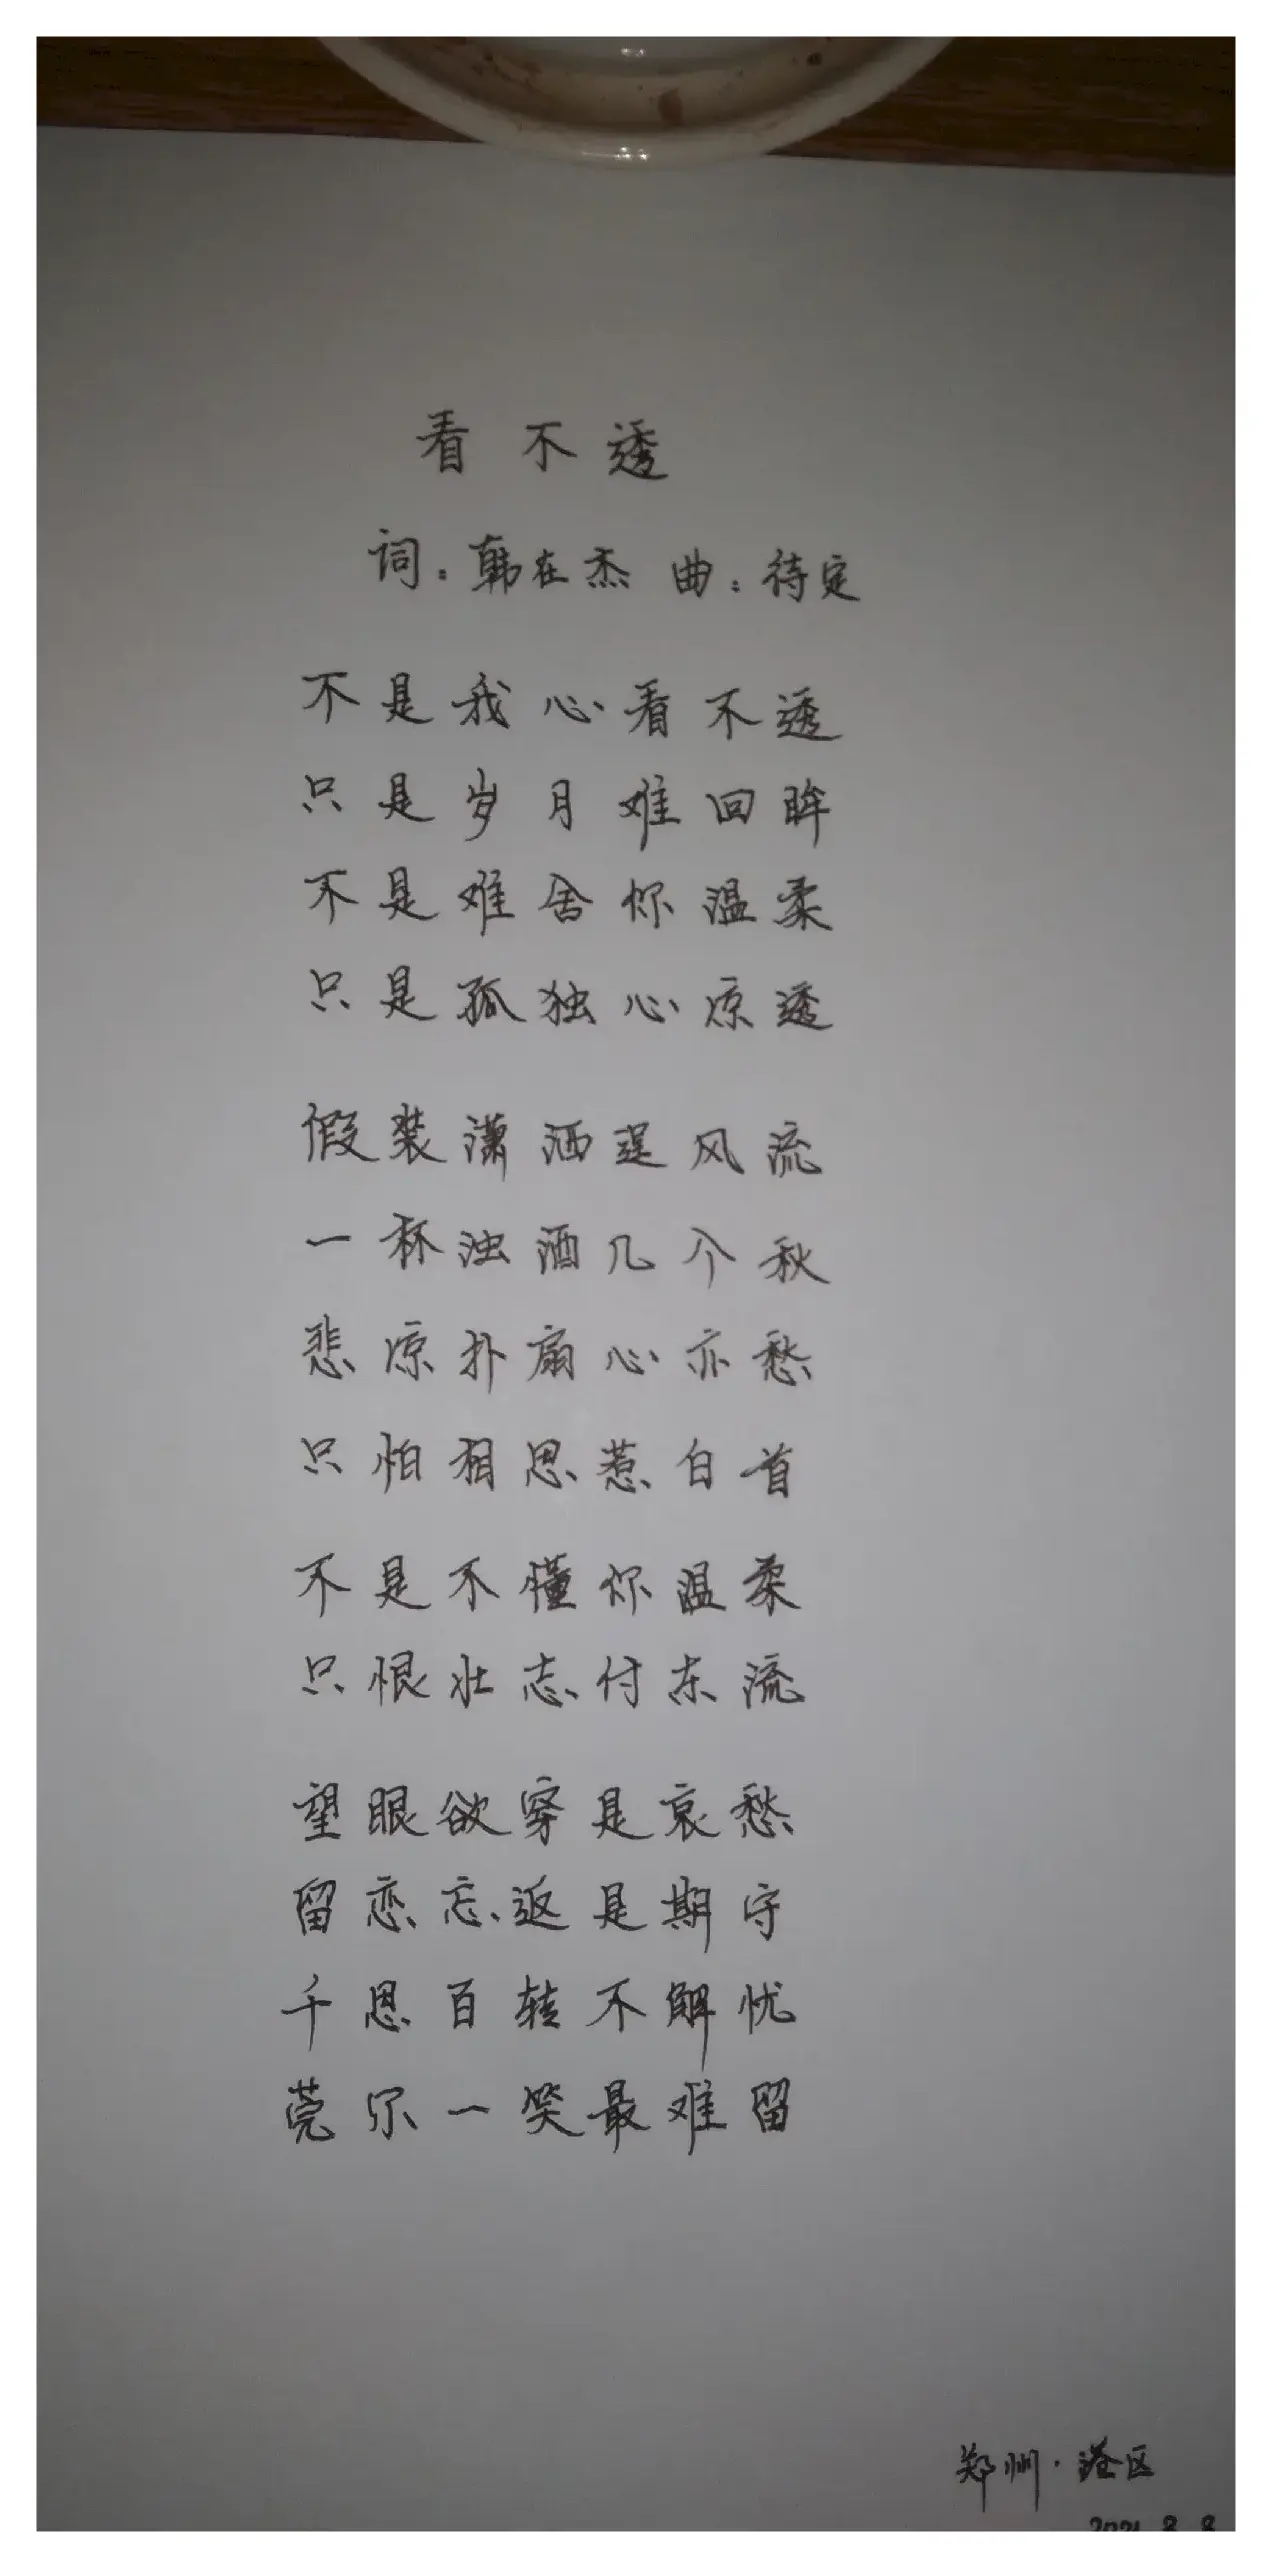 看不透
词：韩在杰 曲：待定
不是我心看不透
只是岁月难回眸
不是难舍你温柔
只是孤独心凉透
假装潇洒逞风流
一杯浊酒几个秋
悲凉扑扇心亦愁
只怕相思惹白首
不是不懂你温柔
只恨壮志付东流
望眼欲穿是哀愁
留恋忘返是期守
千思百转不解忧
莞尔一笑最难留
郑州·港区